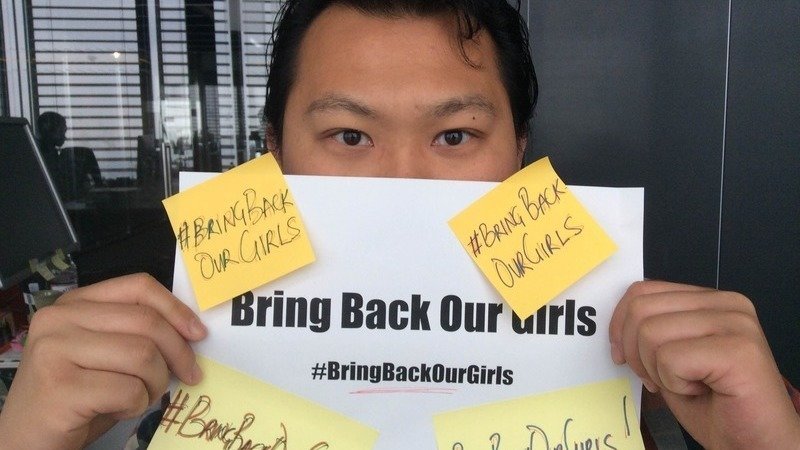 #BRINGBACK
OURGIRLS
#BRINGBACK
OURGIRLS
Bring Back Our Girls
#BringBackOurGirls